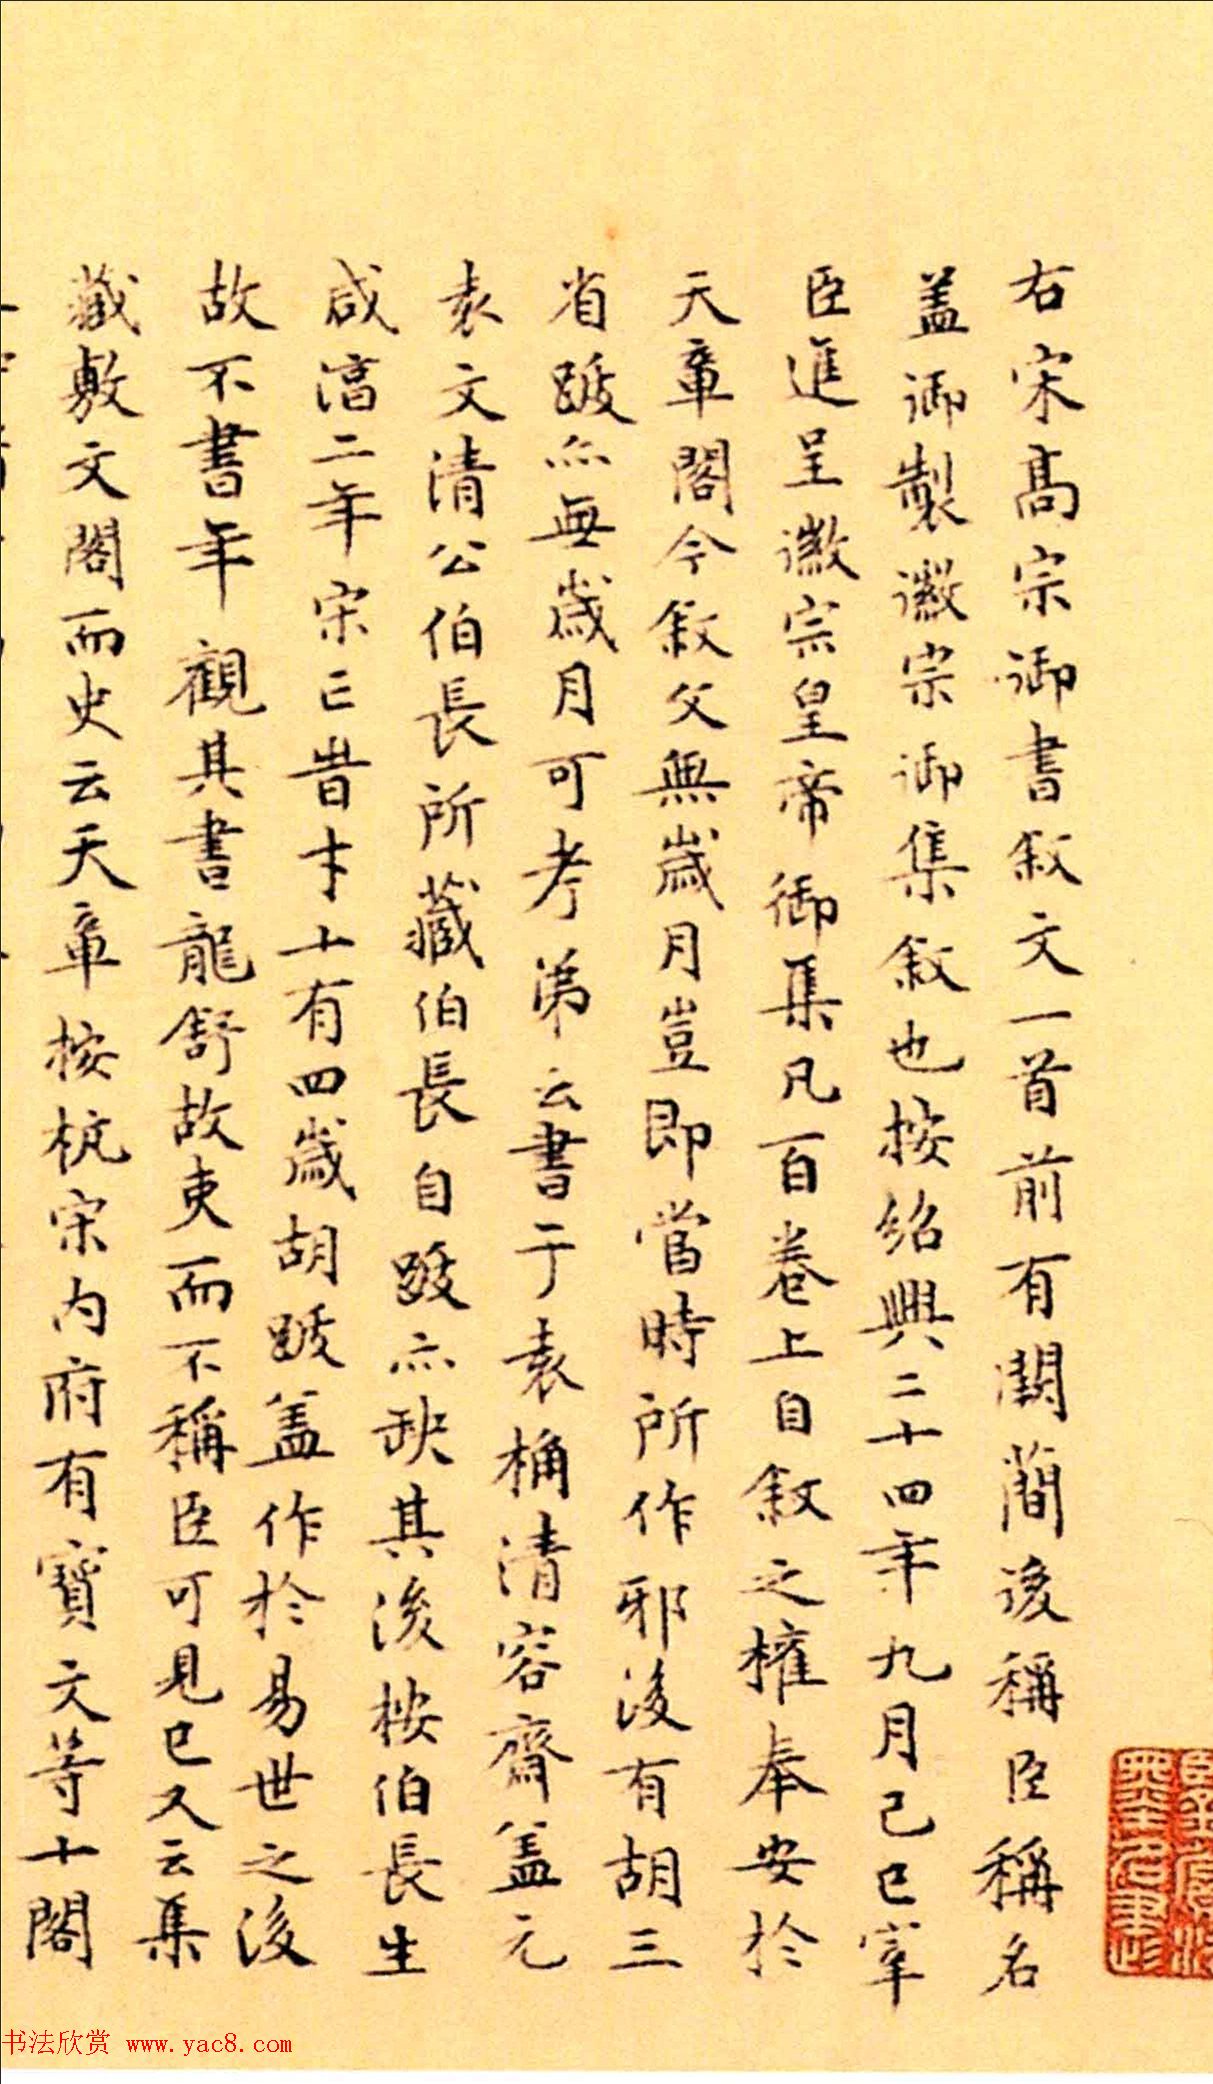 右宋髙宗御書敘文一首前有闕簡後稱臣稱名
盖御製徽宗御集敘也按紹興二十四年九月己巳宰
臣進呈徽宗皇帝御集凡百卷上自敘之權奉安於
天章閣今敘父無歲月豈即當時所作邪後有胡三
省跋亦無歲月可考第云書于袁桷清容齋盖元
袁文清公伯長所藏伯長自跋亦缺其後按伯長生
咸淳二年宋亡昔才十有四歲胡跋盖作於易世之後
故不書年觀其書龍舒故吏而不稱臣可見已又云集
藏敷文閣而史云天章按杭宋内府有寶文等十閣
书法欣赏 www.yac8.com